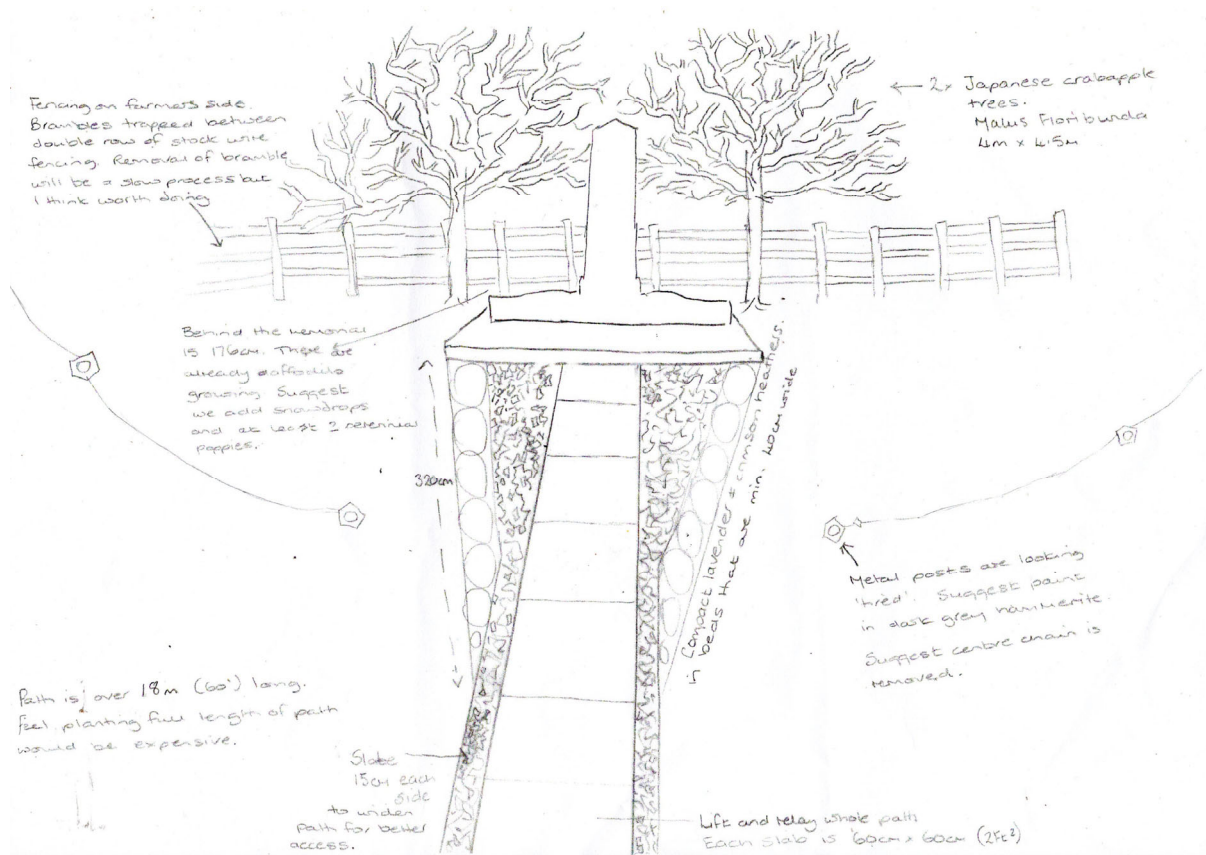 Fencing on farmers side.
Brambles trapped between
double row of stock wire
fencing. Removal of bramble
will be a slow process but
I think worth doing
← 2x Japanese crabapple
trees.
Malus Floribunda
4m x 4.5m
Behind the memorial
is 176cm. There are
already daffodils
growing Suggest
we add snowdrops
and at least perennial
poppies.
320cm
in Compact lavender & crimson heathers.
beds that are min. 40cm wide
Metal posts are looking
'tired'. Suggest paint
in dark grey hammerite.
Suggest centre chain is
removed.
Path is over 18m (60') long.
Feel planting full length of path
would be expensive.
Slate
15cm each
side
to widen
path for better
access.
Lift and relay whole path
Each slab is 60cm x 60cm (2ft²)